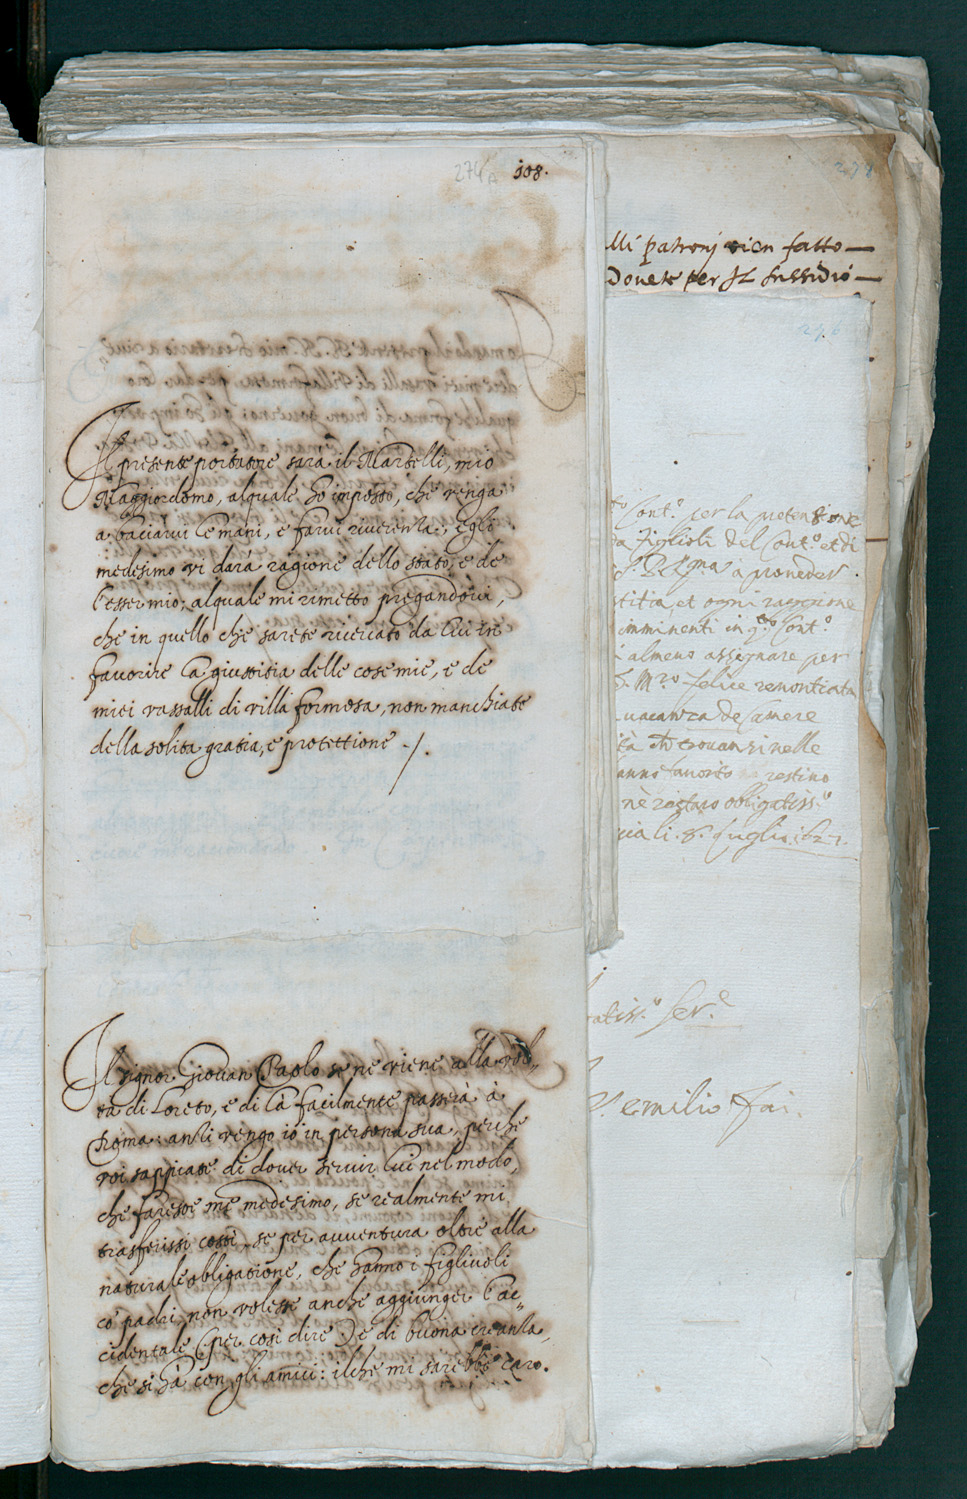 274A 108.
Il presente portatore sarà il Martelli, mio
Maggiordomo, al quale hò imposto, che venga
a baciarvi le mani, e farvi riverenza; Egli
medesimo vi darà ragione dello stato, e de
l'esser mio; al quale mi rimetto pregandovi,
che in quello che sarete ricercato da lui in
favorire la giustitia delle cose mie, e de
miei vassalli di villa formosa, non manchiate
della solita gratia, e protettione ./.
Il signor Giovan Paolo se ne viene alla vol„
ta di Loreto, e di là facilmente passerà à
Roma: anzi vengo io in persona sua, perche
voi sappiate di dover servir lui nel modo,
che fareste me medesimo, se realmente mi
trasferissi costì, se per avventura oltre alla
naturale obligatione, che hanno i figlivoli
cò padri, non voleste anche aggiunger l'ac„
cidentale (per così dire) e di buona creanza,
che si hà con gli amici: ilche mi sarebbe caro.
lli patronj vien fatto —
Dovete per Il sussidio —
276
Cont.º per la pretensione
figlioli del Cont.º et di
a proveder
stitia, et ogni raggione
imminenti in q.to Cont.º
almeno assegnare per
M.ro felice renontiata
vacanza de Camere
trovansi nelle
favorito restino
nè restarò obligatiss.º
li. 8. luglio 162
atiss.º ser.e
emilio fai.